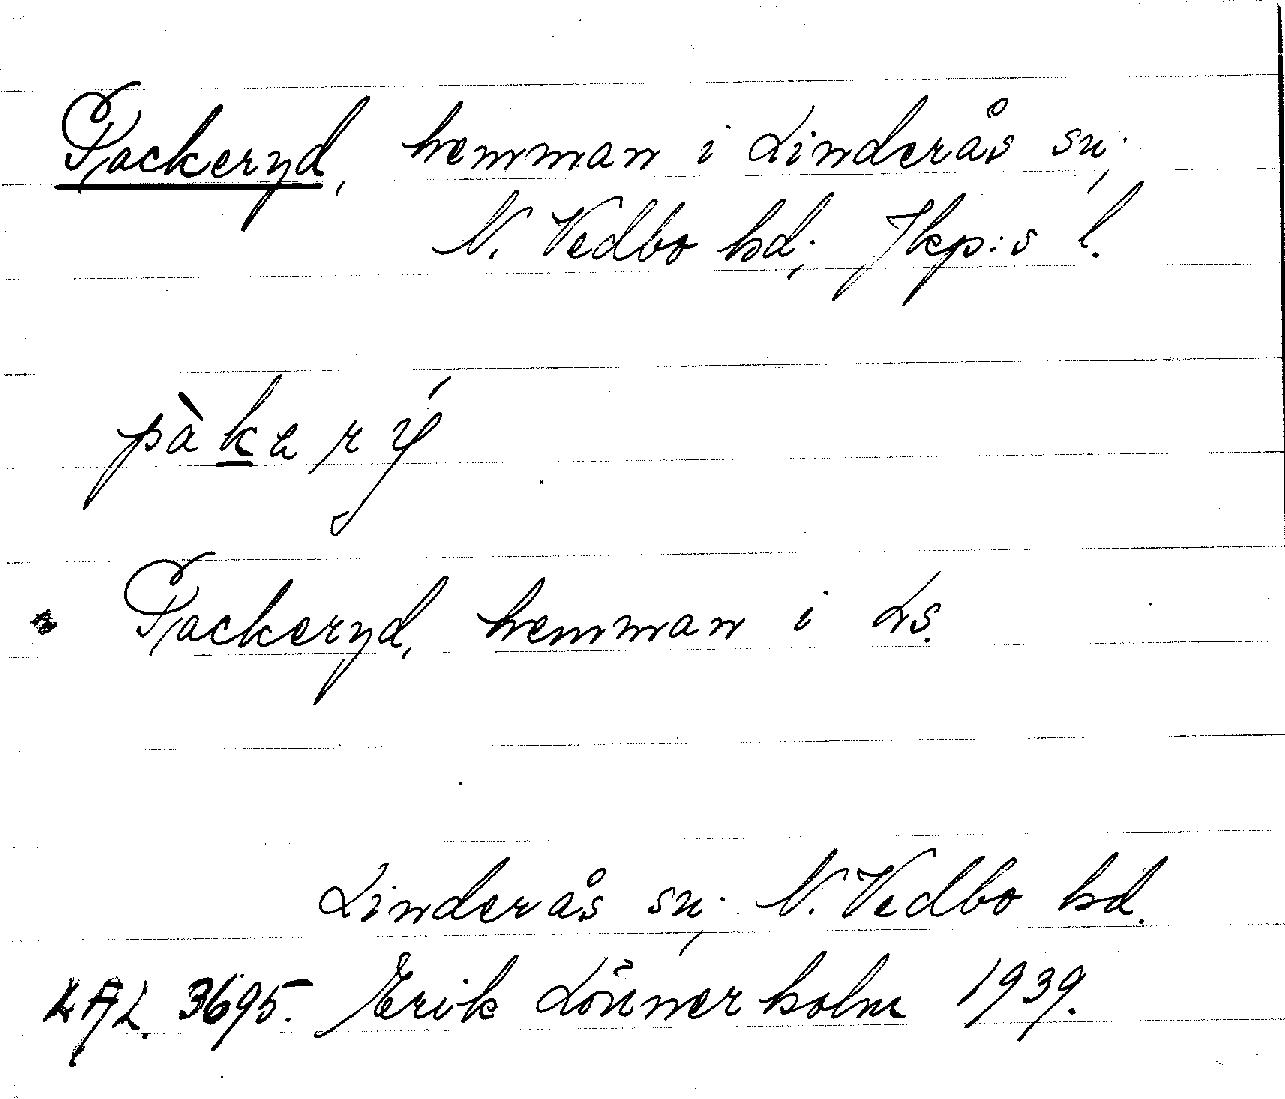 Packeryd, hemman i Linderås sn;
N. Vedbo hd; Jkp:s l.
pàkarý
Packeryd, hemman i Ls.
Linderås sn; N. Vedbo hd.
LAL 3695. Erik Lönnerholm 1939.